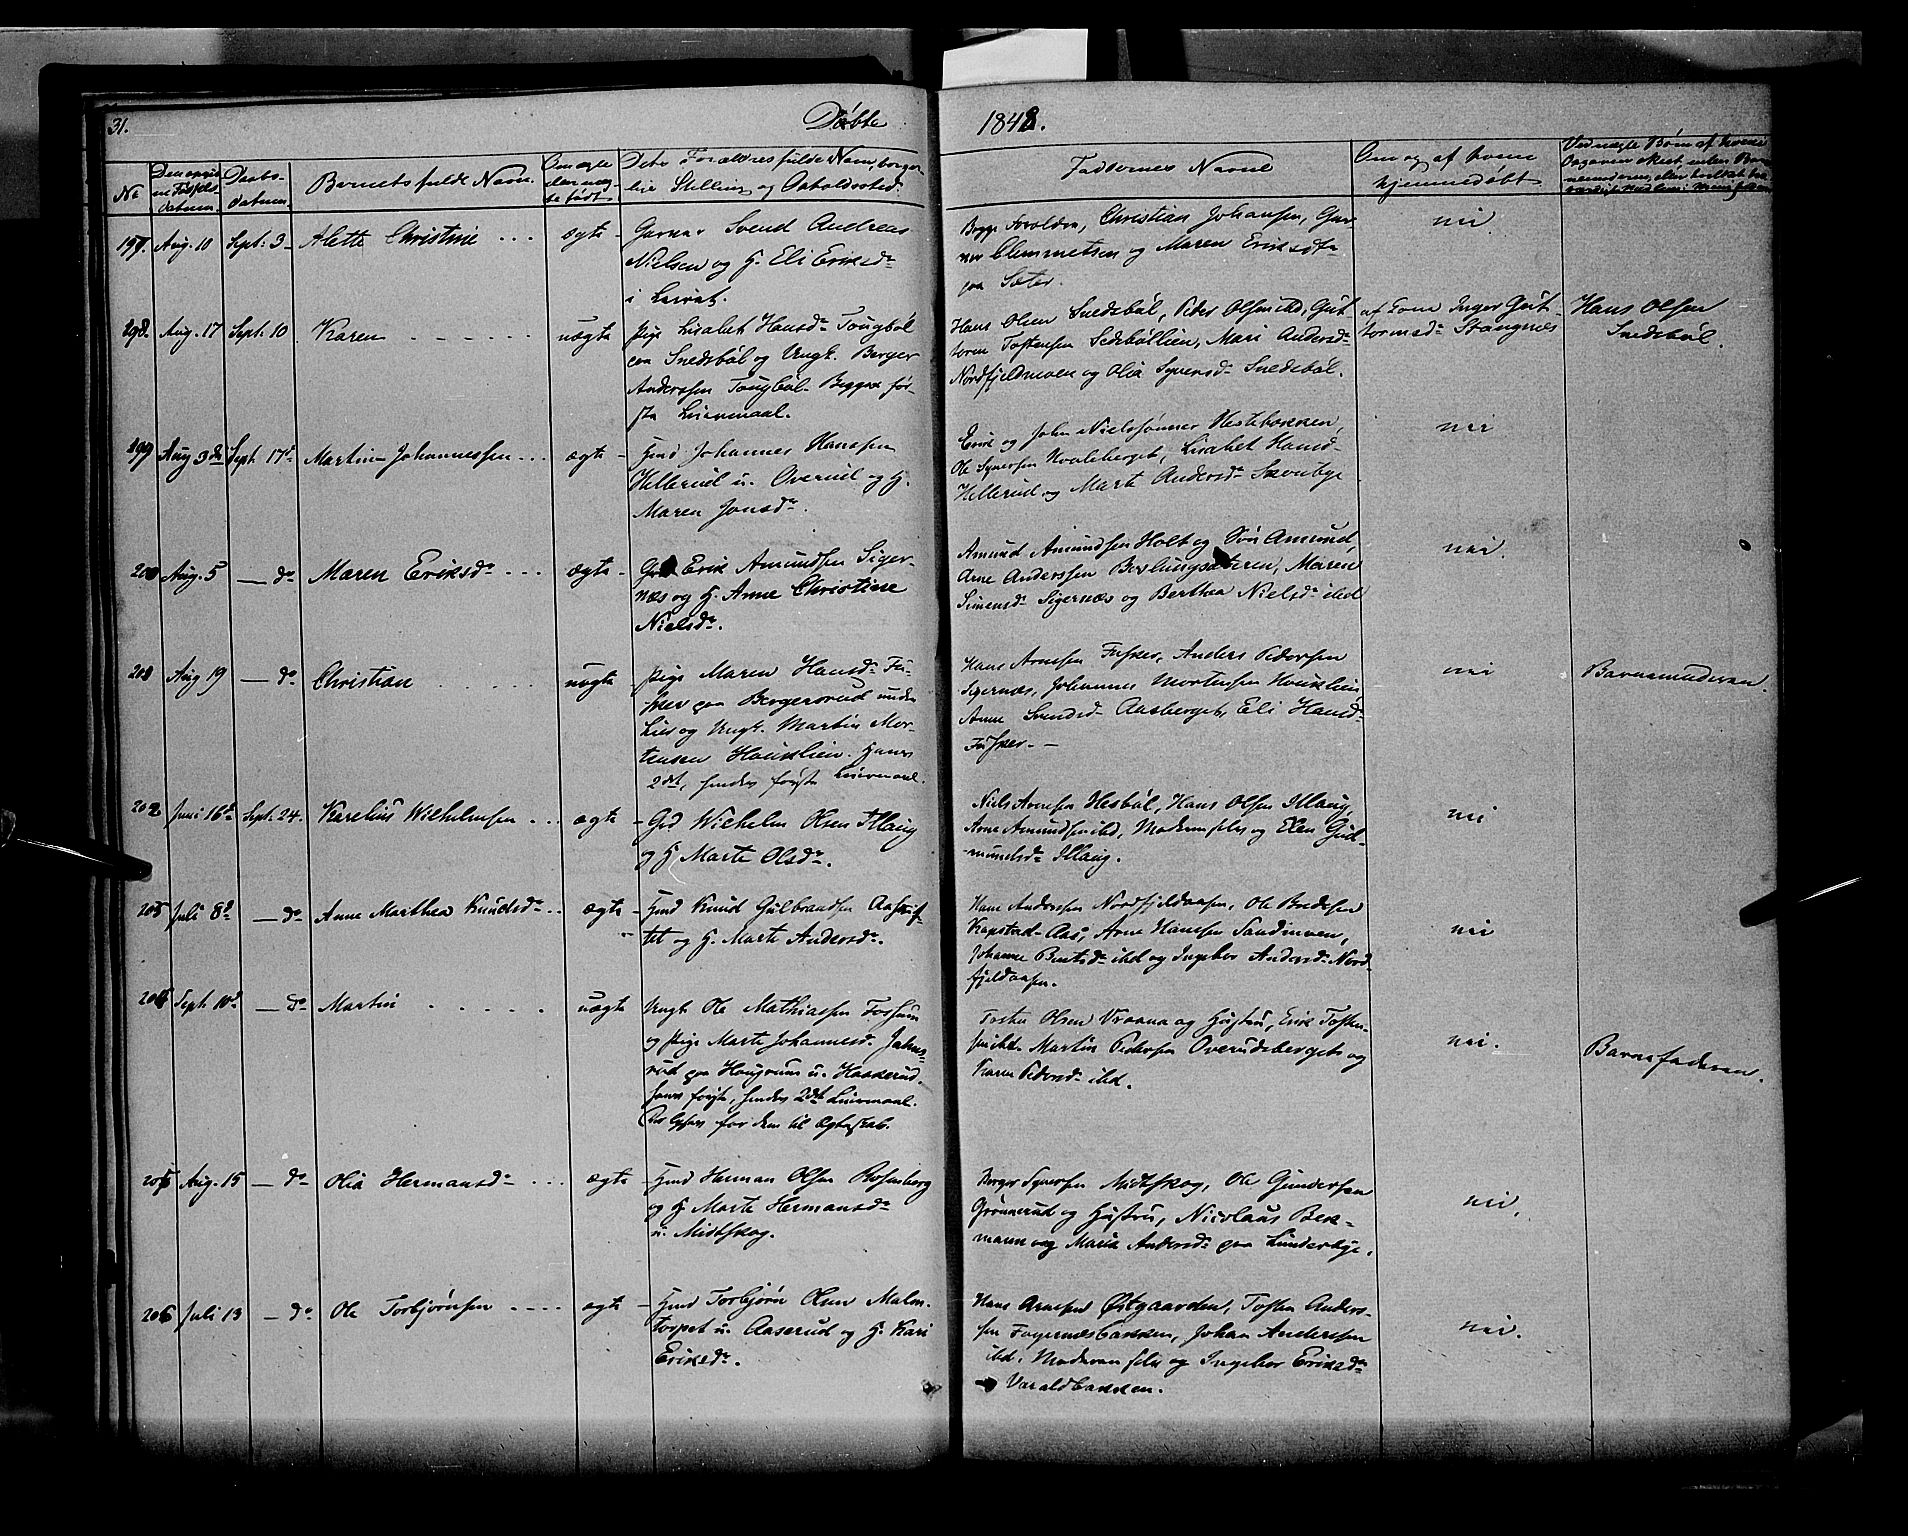 31.
Døbte
1848.
No
Døbs-
datum
Barnets fulde Navn.
Om ægte
eller uæg-
te født
Dets Forældres fulde Navn, borger-
lige Stilling og Opholdssted.
Faddernes Navne
Om og af hvem
hjemmedøbt
197. Aug. 10 Sept: 3 Alette Christine ægte
Svend Andreas
Nielsen og H. Eli Eriksdr
i
Begge Forældre, Christian Johansen,
Clemmetsen og Maren Eriksdtr
paa Sæter.
nei.
198. Aug. 17 Sept. 10 Karen uægte
Pige Lisabet Hansdr Tougbøl
paa Snedsbøl og Ungk. Berger
Anderssen Tougbøl. Begges før-
ste Leiermaal.
Hans Olsen Snedsbøl, Peder Olsen ibd, Gut-
torm Tostensen Sedsbøllien, Mari Andersdr
Nordfjeldmoen og Olia Syversdr Snedsbøl.
af Inger Gut-
tormsdr Stangnæs
Hans Olsen
Snedsbøl.
199 Aug 3de Sept. 17de Martin Johannessen ægte
Hmd Johannes Hanssen
Hellerud u. Overud og H.
Maren Jonsdr.
Erik og John Nielssønner Hestebækken,
Ole Syversen Lisabet Hansd
Hellerud og Marte Andersdr Skoubye
nei
200 Aug. 5 — do Maren Eriksdr ægte
Erik Amundsen Siger-
næs og H. Anne Christine
Nielsdr.
Amund Amundsen Holt og Søn Amund,
Arne Anderssen Maren
Simensdr Sigernæs og Berthea Nielsdr ibd
nei.
201 Aug 19 — do Christian uægte
Pige Maren Hansdr Fu-
sker paa Bergerrud under
Lier og Ungk. Martin Mor-
tensen Houklien. Hans
2det, hendes første Leiermaal.
Hans Arnesen Fusker, Anders Pedersen
Sigernæs, Johannes Mortensen Houklien
Anne Svendsd Aasberget, Eli Hansdr
Fusker. —
nei
Barnemoderen.
202 Juni 16de Sept. 24. Karelius Wilhelmsen ægte
Grd Wilhelm Olsen Illaug
og H Marte Olsdr.
Niels Arnesen Hesbøl, Hans Olsen Illaug,
Arne Amundsen ibd, Moderen selv og Elen Gud-
mundsdr Illaug.
nei
203 Juli 8de — do Anne Marthea Knudsdr ægte
Hmd Knud Gulbrandsen
tet og H. Marte Andersdr.
Hans Anderssen Nordfjeldaasen, Ole
Kapstad-Aas, Arne Hanssen Sandmoen,
Johanne Berntsdr ibd og Ingebor Andersdr Nord-
fjeldaasen.
nei
204 Sept. 10de — do Martin uægte
Ungk Ole Mathiassen Fossum
og Pige Marte Johannesd.
paa Hougrum u. Haskerud.
hans første, hendes 2det Leiermaal.
Der lyses for dem til Ægteskab.
Tosten Olsen Vraana og Hustru, Erik Tosten-
sen ibd. Martin Pedersen Overudsberget og
Karen Pedersdr ibd.
nei.
Barnefaderen.
205 Aug. 15 — do Olia Hermansdr ægte
Hmd Herman Olsen Rosenberg
og H Marte Hermansdr
u. Midtskog.
Berger Syversen Midtskog, Ole Gundersen
Grønnerud og Hustru, Nicolaus Bek-
mann og Maria Andersdr paa Lunderbye.
nei.
206 Juli 13 — do Ole Torbjørnsen ægte
Hmd Torbjørn Olsen Malm-
torpet u. Aaserud og H. Kari
Eriksdr.
Hans Arnesen Østgaarden, Tosten Anders-
sen Fagernesbakken, Johan Anderssen
ibd. Moderen selv og Ingebor Eriksdr
Varaldbakken.
nei.